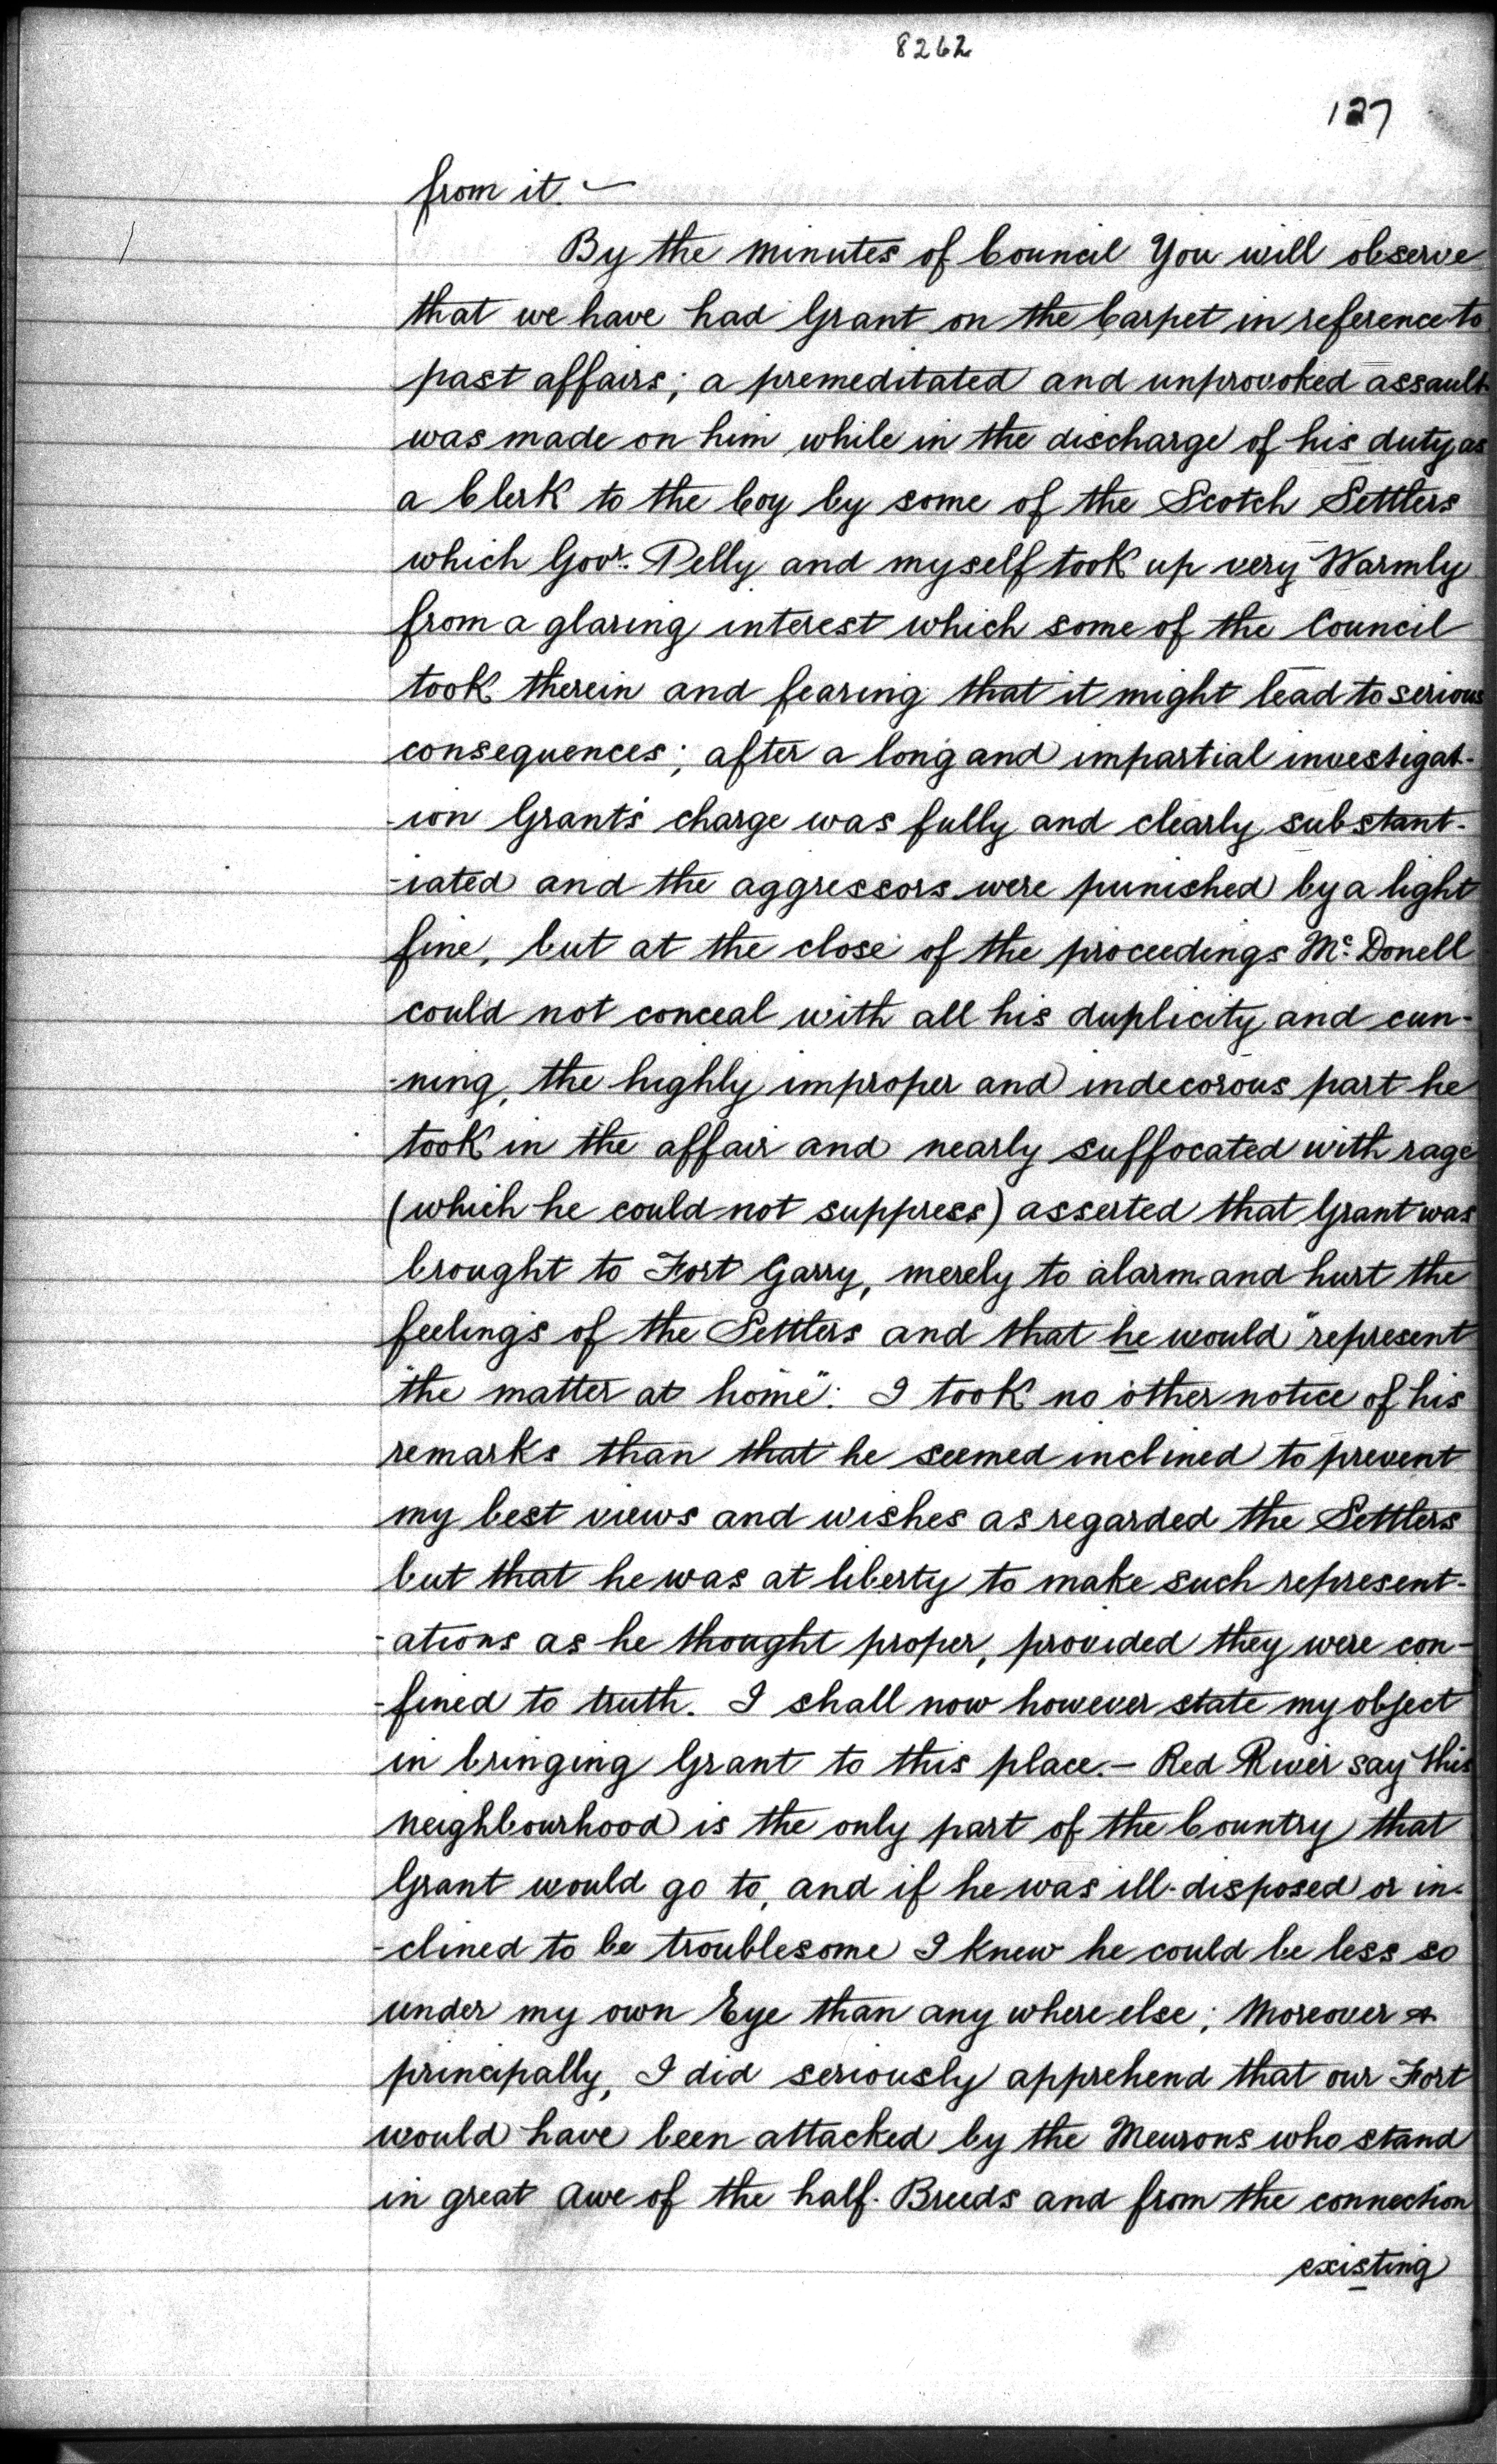 8262
127
from it. —
By the minutes of Council You will observe
that we have had Grant on the Carpet in reference to
past affairs; a premeditated and unprovoked assault
was made on him while in the discharge of his duty as
a Clerk to the Coy by some of the Scotch Settlers
which Govr. Pelly and myself took up very Warmly
from a glaring interest which some of the Council
took therein and fearing that it might lead to serious
consequences; after a long and impartial investigat-
-ion Grant's charge was fully and clearly substant-
-iated and the aggressors were punished by a light
fine, but at the close of the proceedings Mc. Donell
could not conceal with all his duplicity and cun-
-ning, the highly improper and indecorous part he
took in the affair and nearly suffocated with rage
(which he could not suppress) asserted that Grant was
brought to Fort Garry, merely to alarm and hurt the
feelings of the Settlers and that he would "represent
the matter at home": I took no other notice of his
remarks than that he seemed inclined to prevent
my best views and wishes as regarded the Settlers
but that he was at liberty to make such represent-
-ations as he thought proper, provided they were con-
-fined to truth. I shall now however state my object
in bringing Grant to this place. — Red River say this
neighbourhood is the only part of the Country that
Grant would go to, and if he was ill-disposed or in-
-clined to be troublesome I knew he could be less so
under my own Eye than any where else; Moreover &
principally, I did seriously apprehend that our Fort
would have been attacked by the Meurons who stand
in great awe of the half-Breeds and from the connection
existing